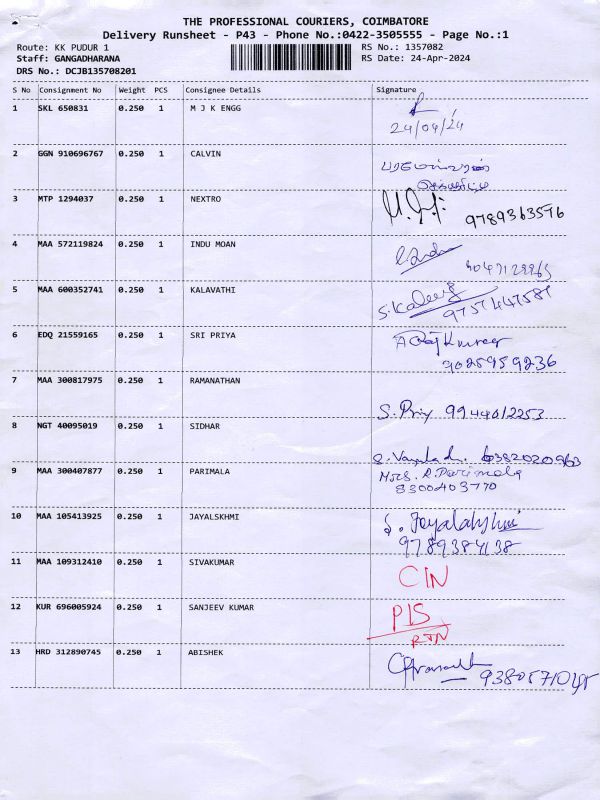 THE PROFESSIONAL COURIERS, COIMBATORE
Delivery Runsheet - P43 - Phone No.:0422-3505555 - Page No.:1
Route: KK PUDUR 1 RS No.: 1357082
Staff: GANGADHARANA RS Date: 24-Apr-2024
DRS No.: DCJB135708201
S No Consignment No Weight PCS Consignee Details Signature
1 SKL 650831 0.250 1 M J K ENGG
24/04/24
2 GGN 910696767 0.250 1 CALVIN
3 MTP 1294037 0.250 1 NEXTRO
9789363596
4 MAA 572119824 0.250 1 INDU MOAN
5 MAA 600352741 0.250 1 KALAVATHI
6 EDQ 21559165 0.250 1 SRI PRIYA
9025959236
7 MAA 300817975 0.250 1 RAMANATHAN
S. Priy 9944612253
8 NGT 40095019 0.250 1 SIDHAR
6382020963
9 MAA 300407877 0.250 1 PARIMALA Mrs. R. Parimala
8300403770
10 MAA 105413925 0.250 1 JAYALSKHMI S. Jeyalakshmi
9789384138
11 MAA 109312410 0.250 1 SIVAKUMAR CIN
12 KUR 696005924 0.250 1 SANJEEV KUMAR PIS
RTN
13 HRD 312890745 0.250 1 ABISHEK